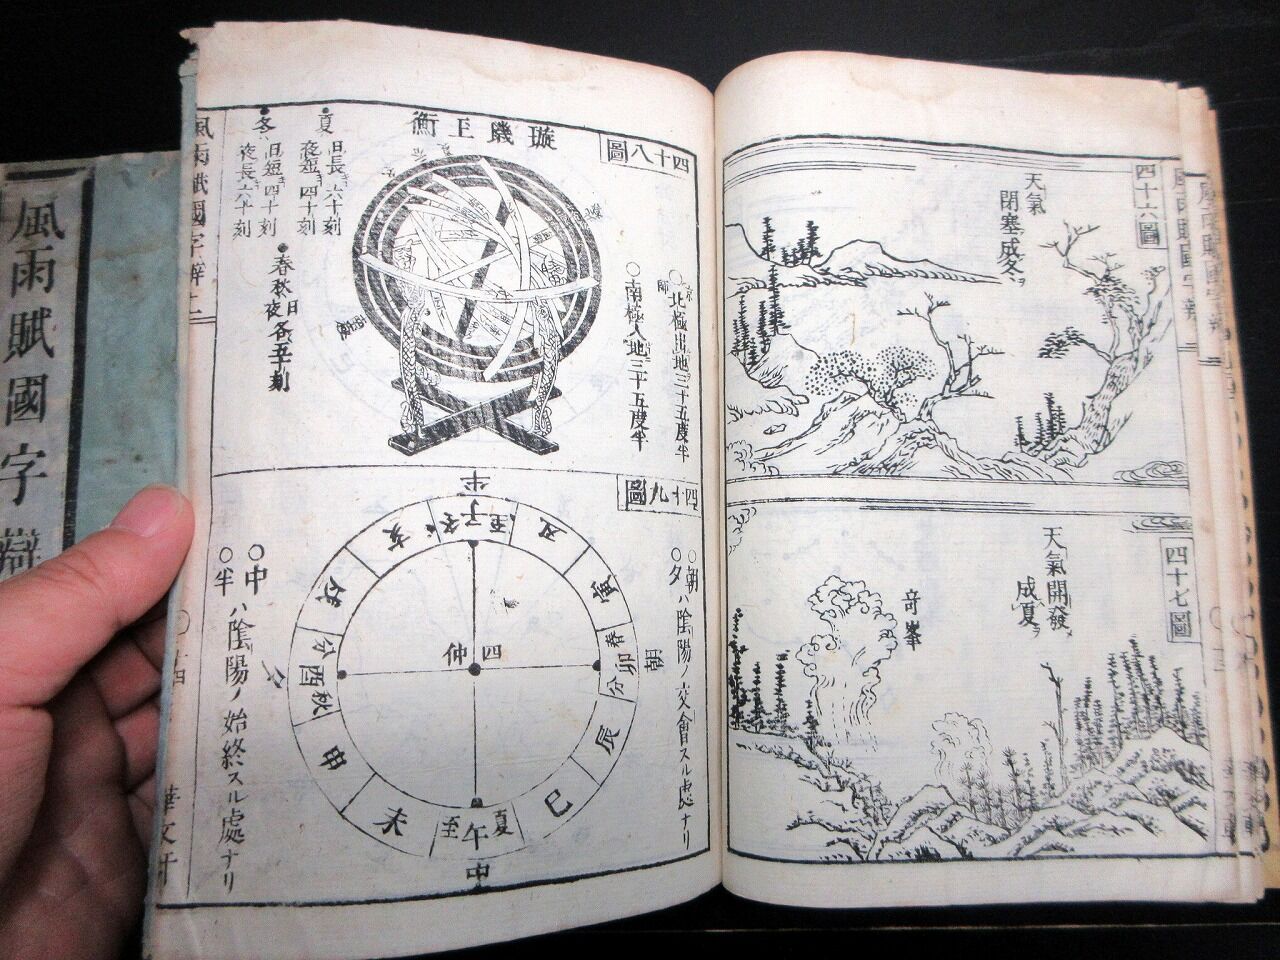 風雨賦國字辯
四十六圖
天氣
閉塞成冬ヲ
四十七圖
天氣開發
成夏ヲ
奇峯
四十八圖
璇璣玉衡
京師
○北極出地三十五度半
○南極入地三十五度半
夏
日長六十刻
夜短四十刻
冬
日短四十刻
夜長六十刻
春秋日夜各五十刻
四十九圖
○朝
○夕ハ陰陽ノ交會スル處ナリ
半
子冬至
丑
寅
卯春分
朝
辰
巳
午夏至
中
未
申
酉秋分
夕
戌
亥
四仲
○中
○半ハ陰陽ノ始終スル處ナリ
風雨賦國字辨上
十四
華文軒